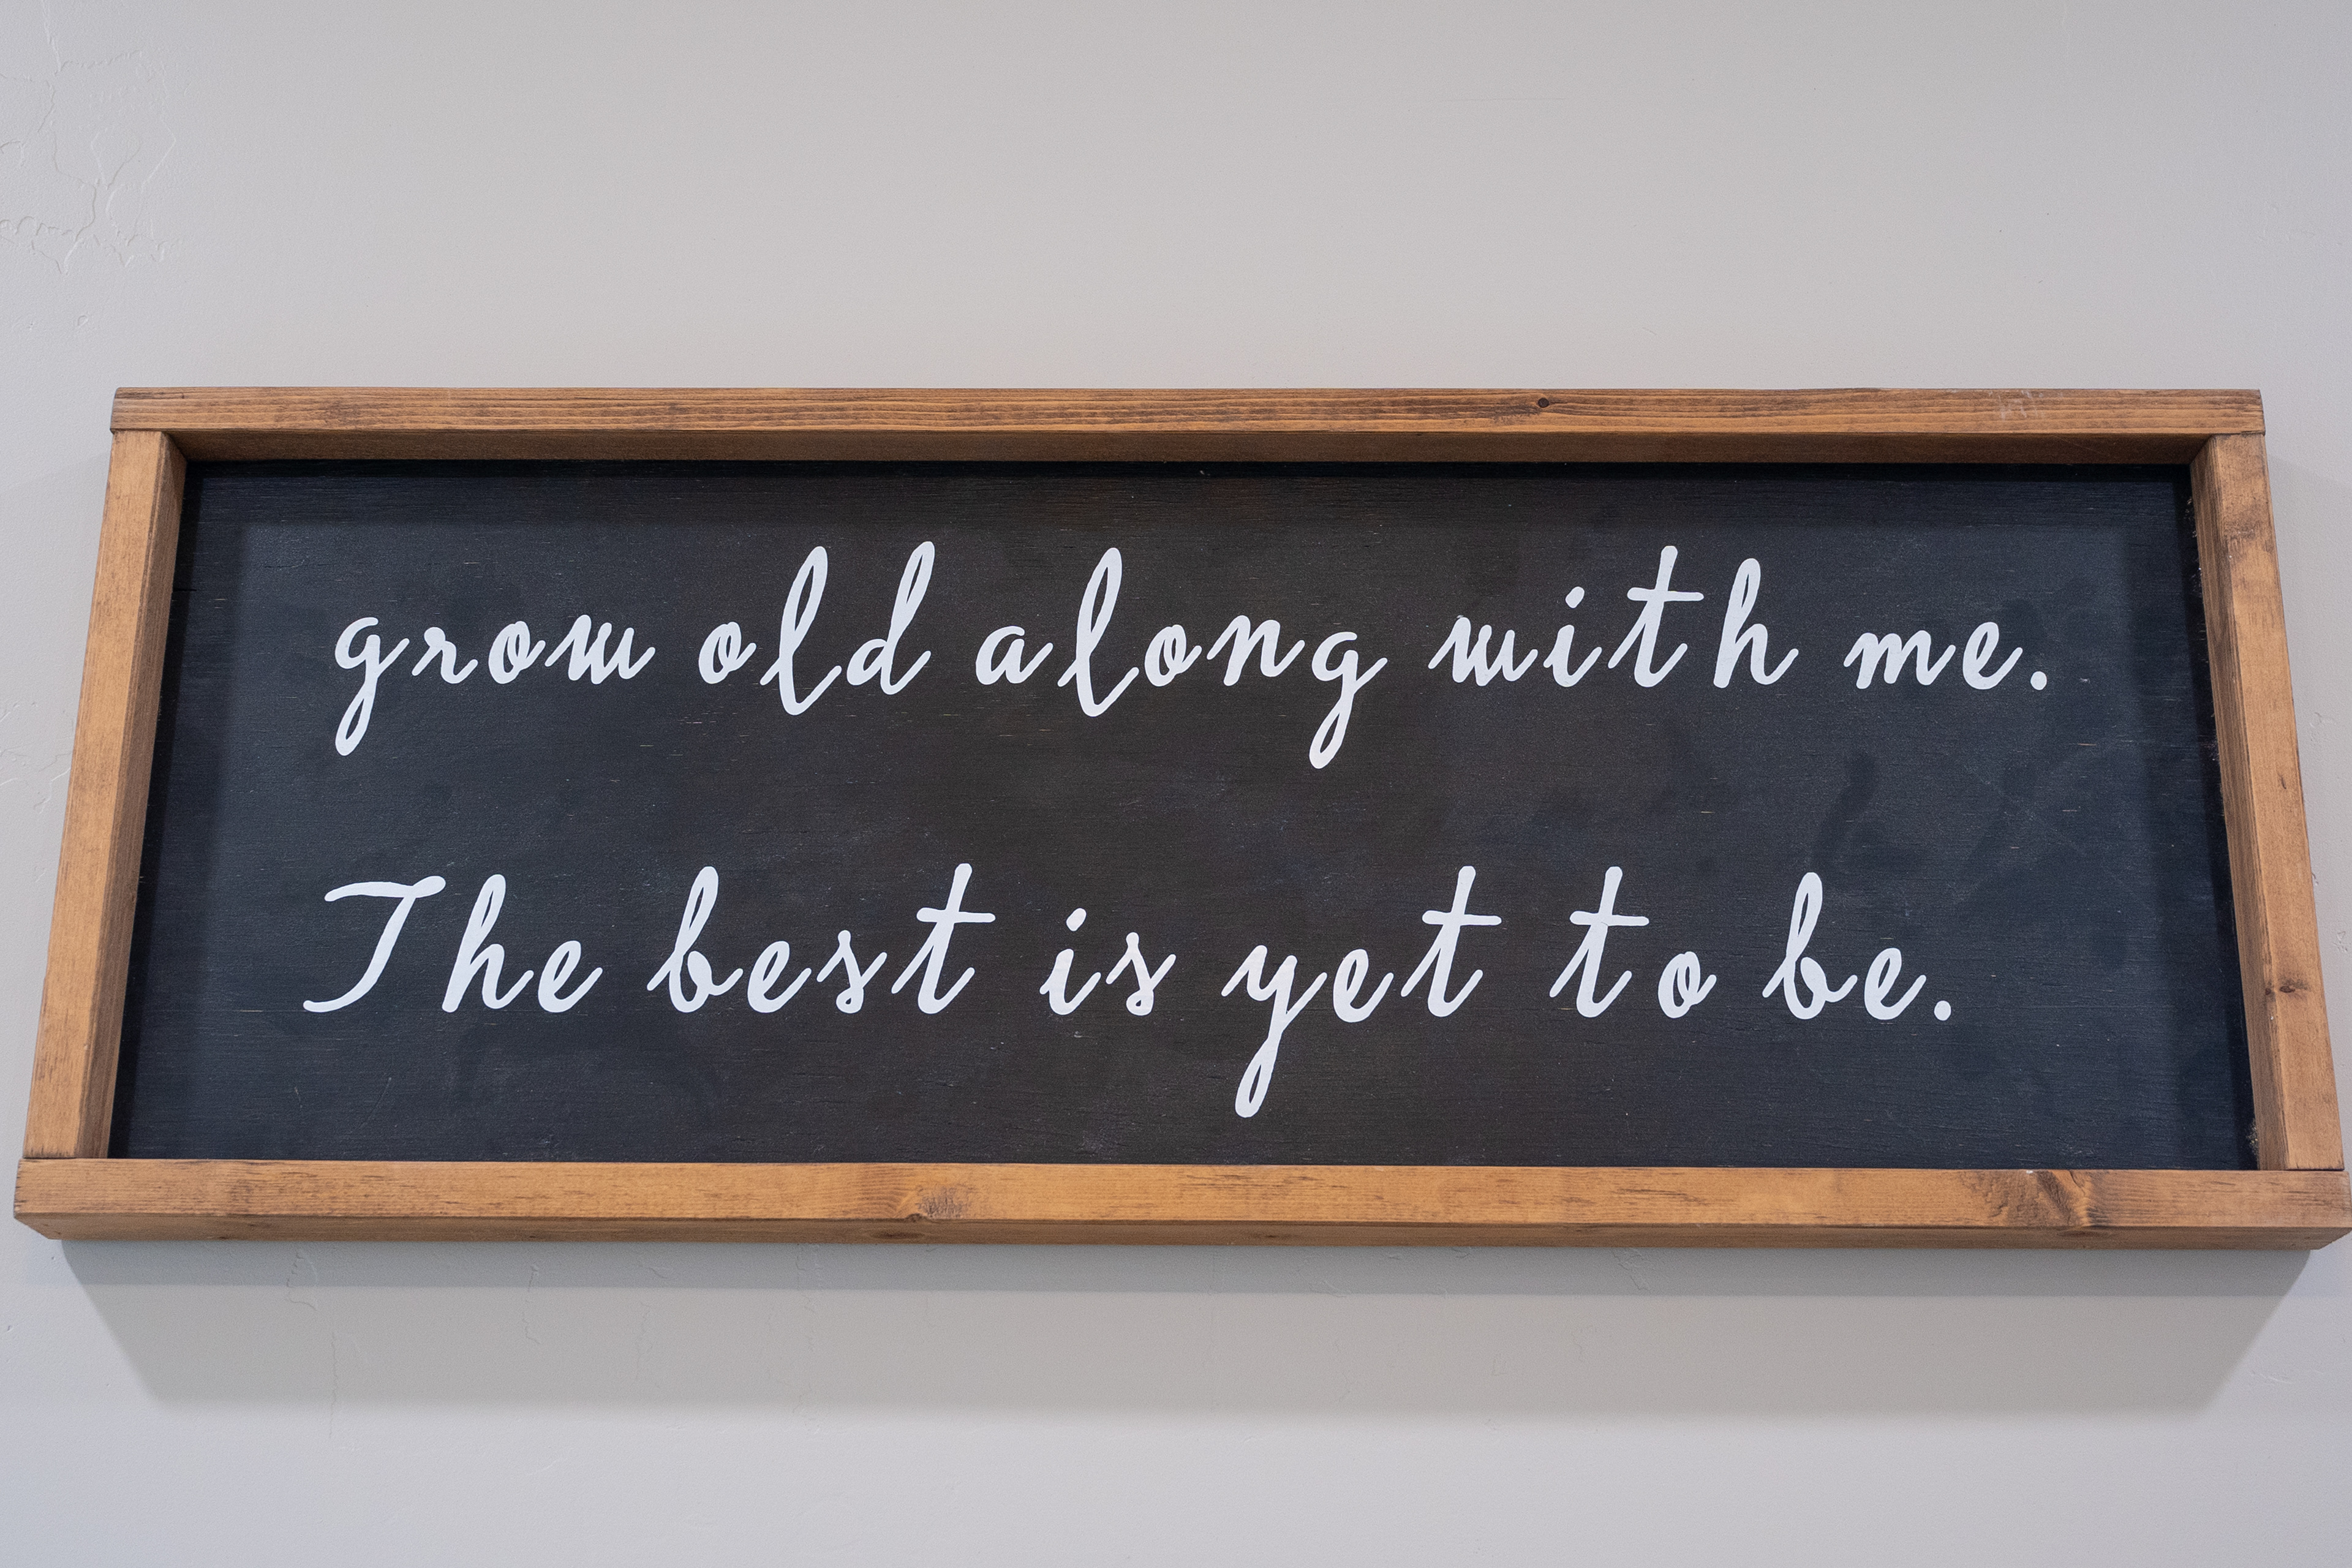 grow old along with me.
The best is yet to be.